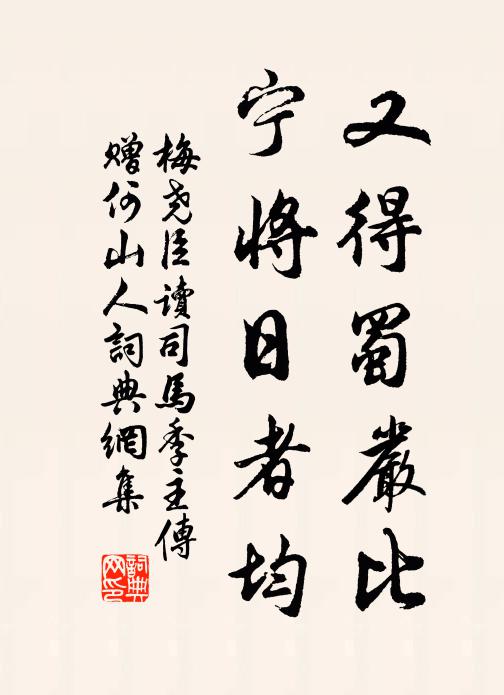 又得蜀嚴比
宁將日者均
梅尧臣讀司馬季主傳
赠何山人詞典網集
詞典网印